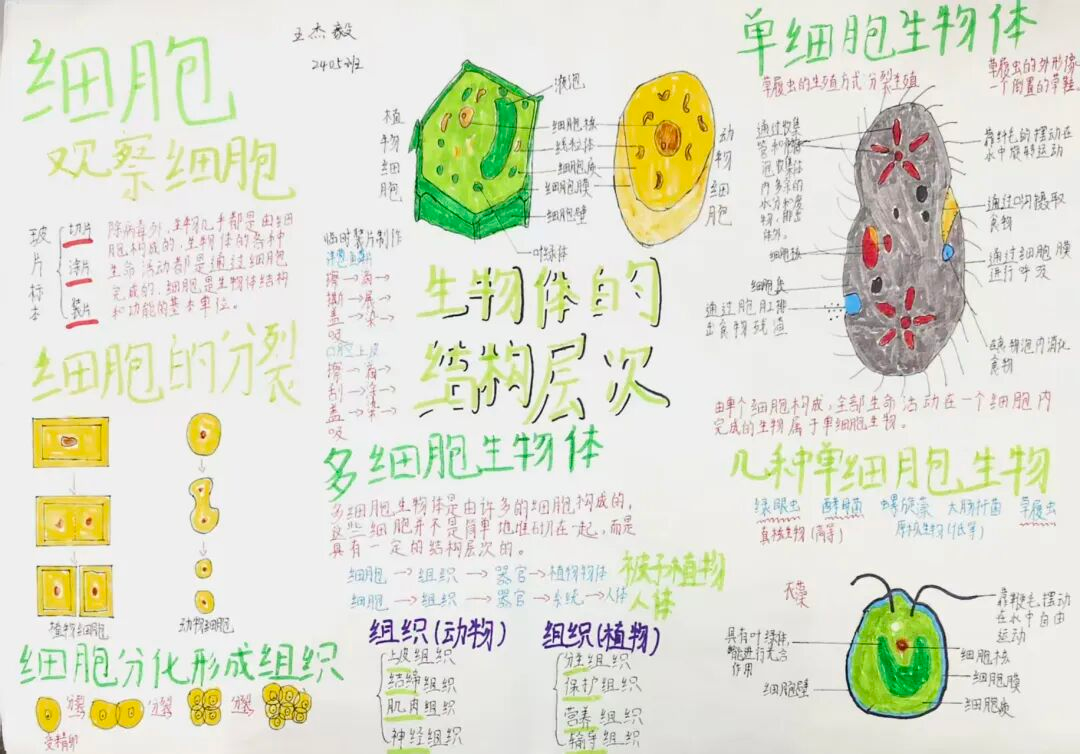 王杰毅
2405班
细胞
观察细胞
玻片标本
切片
涂片
装片
除病毒外，生物几乎都是由细
胞构成的，生物体的各种
生命活动都是通过细胞
完成的，细胞是生物体结构
和功能的基本单位。
细胞的分裂
植物细胞
动物细胞
细胞分化形成组织
分裂
分裂
分裂
受精卵
植物细胞
液泡
细胞核
线粒体
细胞质
细胞膜
细胞壁
叶绿体
动物细胞
临时装片制作
擦→滴→
撕→展→
盖→染→
吸
口腔上皮
擦→滴→
刮→涂→
盖→染→
吸
生物体的
结构层次
多细胞生物体
多细胞生物体是由许多的细胞构成的，
这些细胞并不是简单地堆砌在一起，而是
具有一定的结构层次的。
细胞→组织→器官→植物物体 被子植物
细胞→组织→器官→系统→人体 人体
组织(动物)
上皮组织
结缔组织
肌肉组织
神经组织
组织(植物)
分生组织
保护组织
营养组织
输导组织
单细胞生物体
草履虫的生殖方式 分裂生殖
草履虫的外形像
一个倒置的草鞋
通过收集
管和伸缩
泡收集体
内多余的
水分和废
物，排出
体外。
细胞核
通过胞肛排
出食物残渣
靠纤毛的摆动在
水中旋转运动
通过口沟摄取
食物
通过细胞膜
进行呼吸
在食物泡内消化
食物
由单个细胞构成，全部生命活动在一个细胞内
完成的生物属于单细胞生物。
几种单细胞生物
绿眼虫 酵母菌 螺旋藻 大肠杆菌 草履虫
真核生物(高等) 原核生物(低等)
衣藻
具有叶绿体，
能进行光合
作用
细胞壁
靠鞭毛摆动
在水中自由
运动
细胞核
细胞膜
细胞质